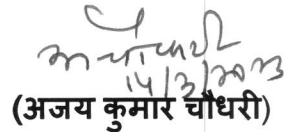 14/3/2023
(अजय कुमार चौधरी)